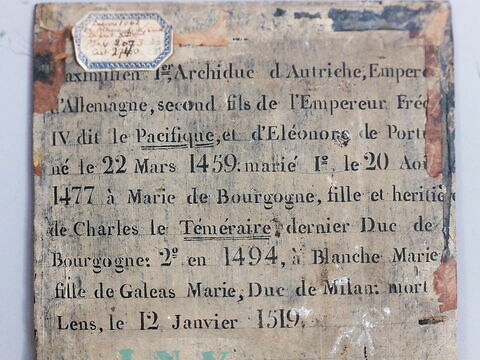 207
Maximilien 1er, Archiduc d'Autriche, Empere
d'Allemagne, second fils de l'Empereur Fréd
IV dit le Pacifique, et d'Eléonore de Portu
né le 22 Mars 1459. marié 1º. le 20 Aoû
1477 à Marie de Bourgogne, fille et heritiè
de Charles le Téméraire, dernier Duc de
Bourgogne: 2º en 1494, à Blanche Marie
fille de Galeas Marie, Duc de Milan: mort
Lens, le 12 Janvier 1519.
INV